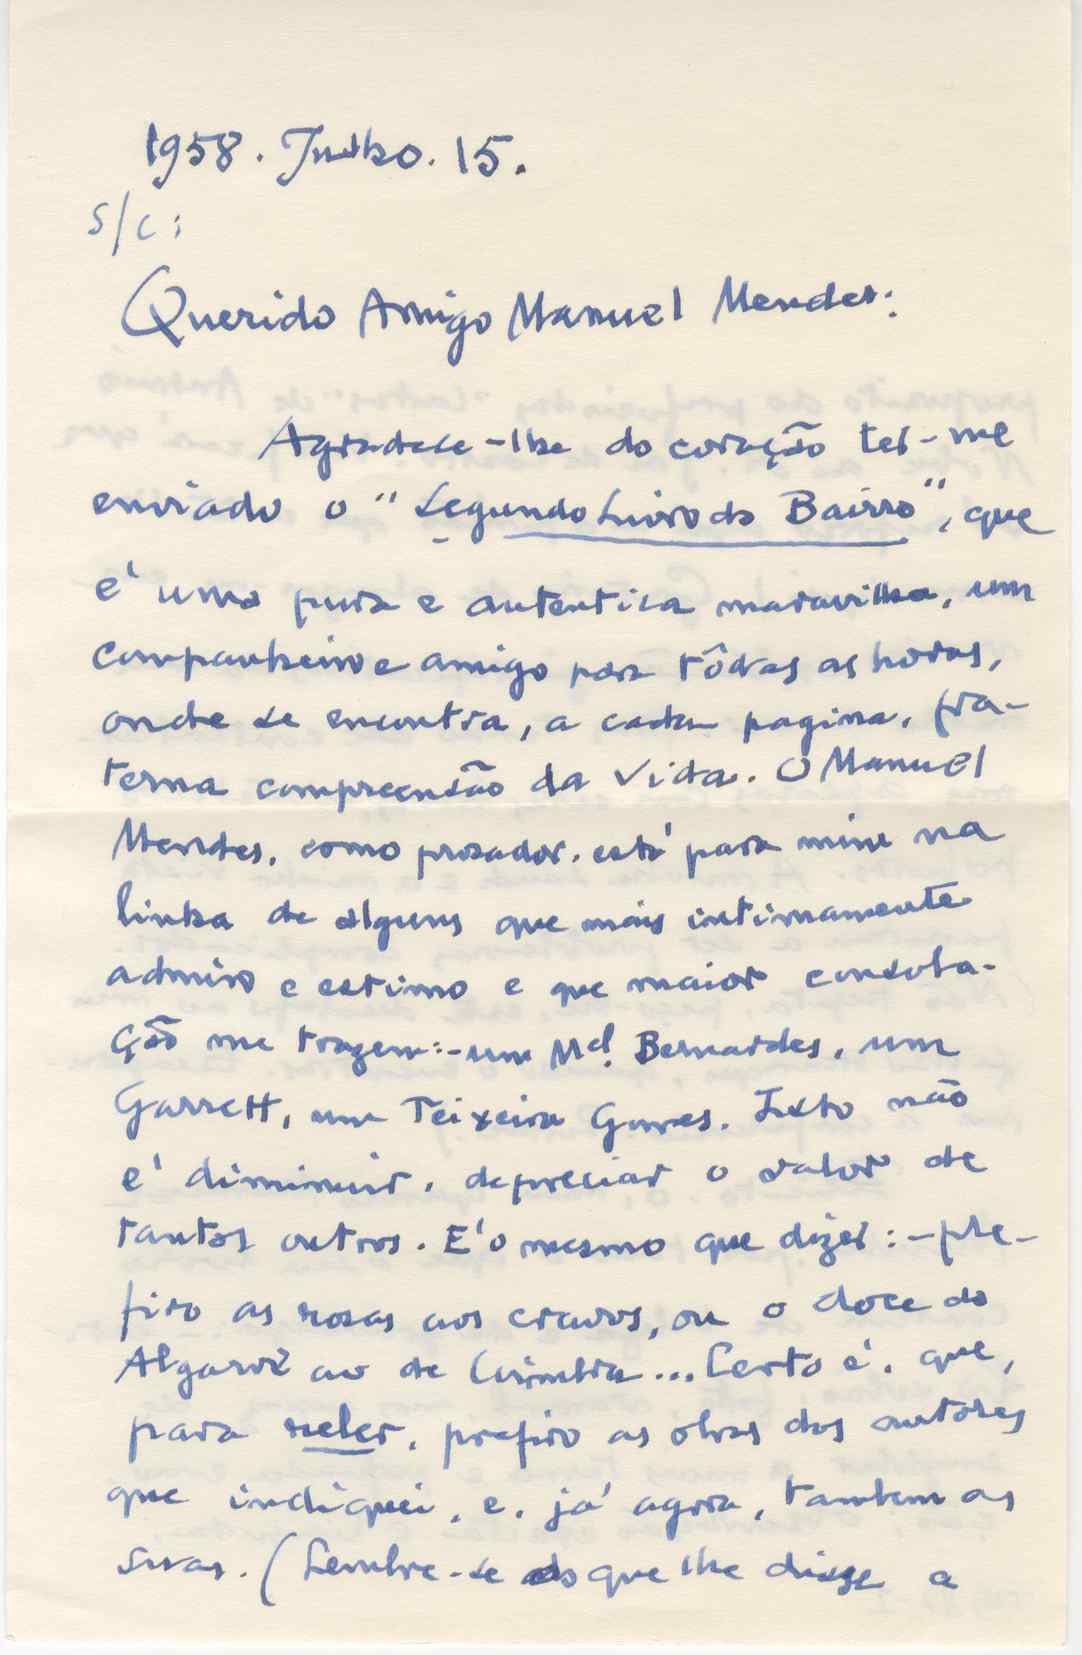 1958. Julho. 15.
S/C:
Querido Amigo Manuel Mendes:
Agradece-lhe do coração ter-me
enviado o "Segundo Livro do Bairro", que
é uma pura e autentica maravilha, um
companheiro e amigo para tôdas as horas,
onde se encontra, a cada pagina, fra-
terna compreensão da Vida. O Manuel
Mendes, como prosador, está para mim na
linha de alguns que mais intimamente
admiro e estimo e que maior consola-
ção me trazem:-um Mel. Bernardes, um
Garrett, um Teixeira Gomes. Isto não
é diminuir, depreciar o valor de
tantos outros. E' o mesmo que dizer:-pre-
firo as rosas aos cravos, ou o doce do
Algarve ao de Coimbra... Certo é, que,
para reler, prefiro as obras dos autores
que indiquei, e, já agora, tambem as
suas. (Lembre-se do que lhe disse a